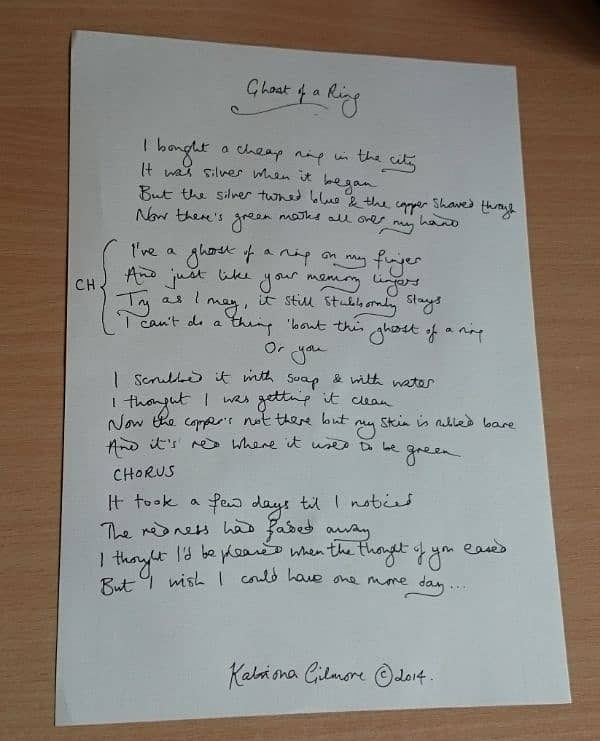 Ghost of a Ring
I bought a cheap ring in the city
It was silver when it began
But the silver turned blue & the copper showed through
Now there's green marks all over my hand
I've a ghost of a ring on my finger
And just like your memory lingers
CH
Try as I may, it still stubbornly stays
I can't do a thing 'bout this ghost of a ring
Or you
I scrubbed it with soap & with water
I thought I was getting it clean
Now the copper's not there but my skin is rubbed bare
And it's red where it used to be green
CHORUS
It took a few days til I noticed
The redness had faded away
I thought I'd be pleased when the thought of you eased
But I wish I could have one more day...
Katriona Gilmore © 2014.